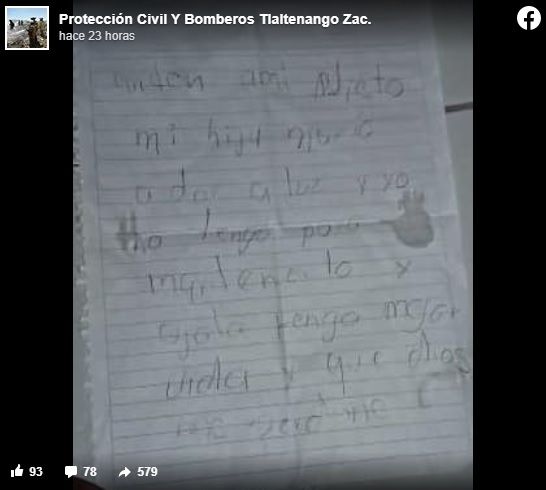 Protección Civil Y Bomberos Tlaltenango Zac.
hace 23 horas
ami Nieto
mi hija
a dar a luz y yo
no tengo para
mantenerlo y
ojala tenga mejor
vida y que dios
me
93 78 579